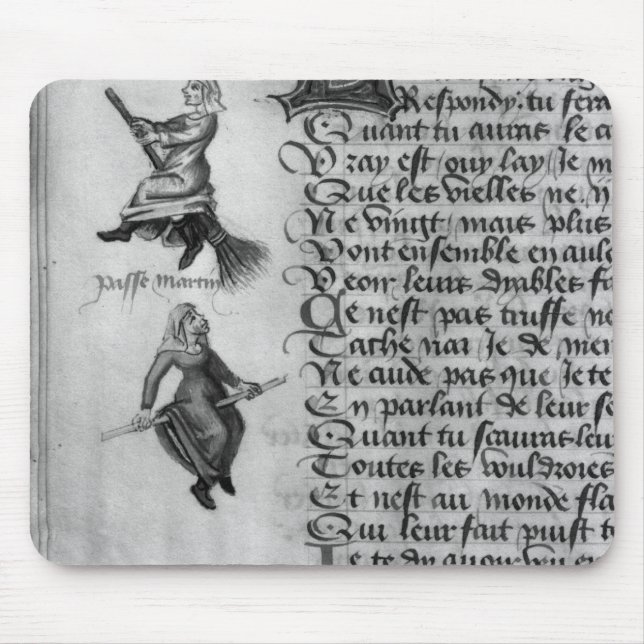 Respondy. tu fera
Quant tu auras le
Vray est / ouy lay / Je m
Que les vielles ne. y
Ne vingt / mais plus
Vont ensemble en aule
Veoir leurs dyables fa
Ce nest pas truffe ne
Tache nar Je de men
Ne cuide pas que Je te
En parlant de leur se
Quant tu scauras leur
Toutes les vouldroies
Et nest au monde fla
Qui leur fait puist t
Je te dy auoir veu en
passe martin